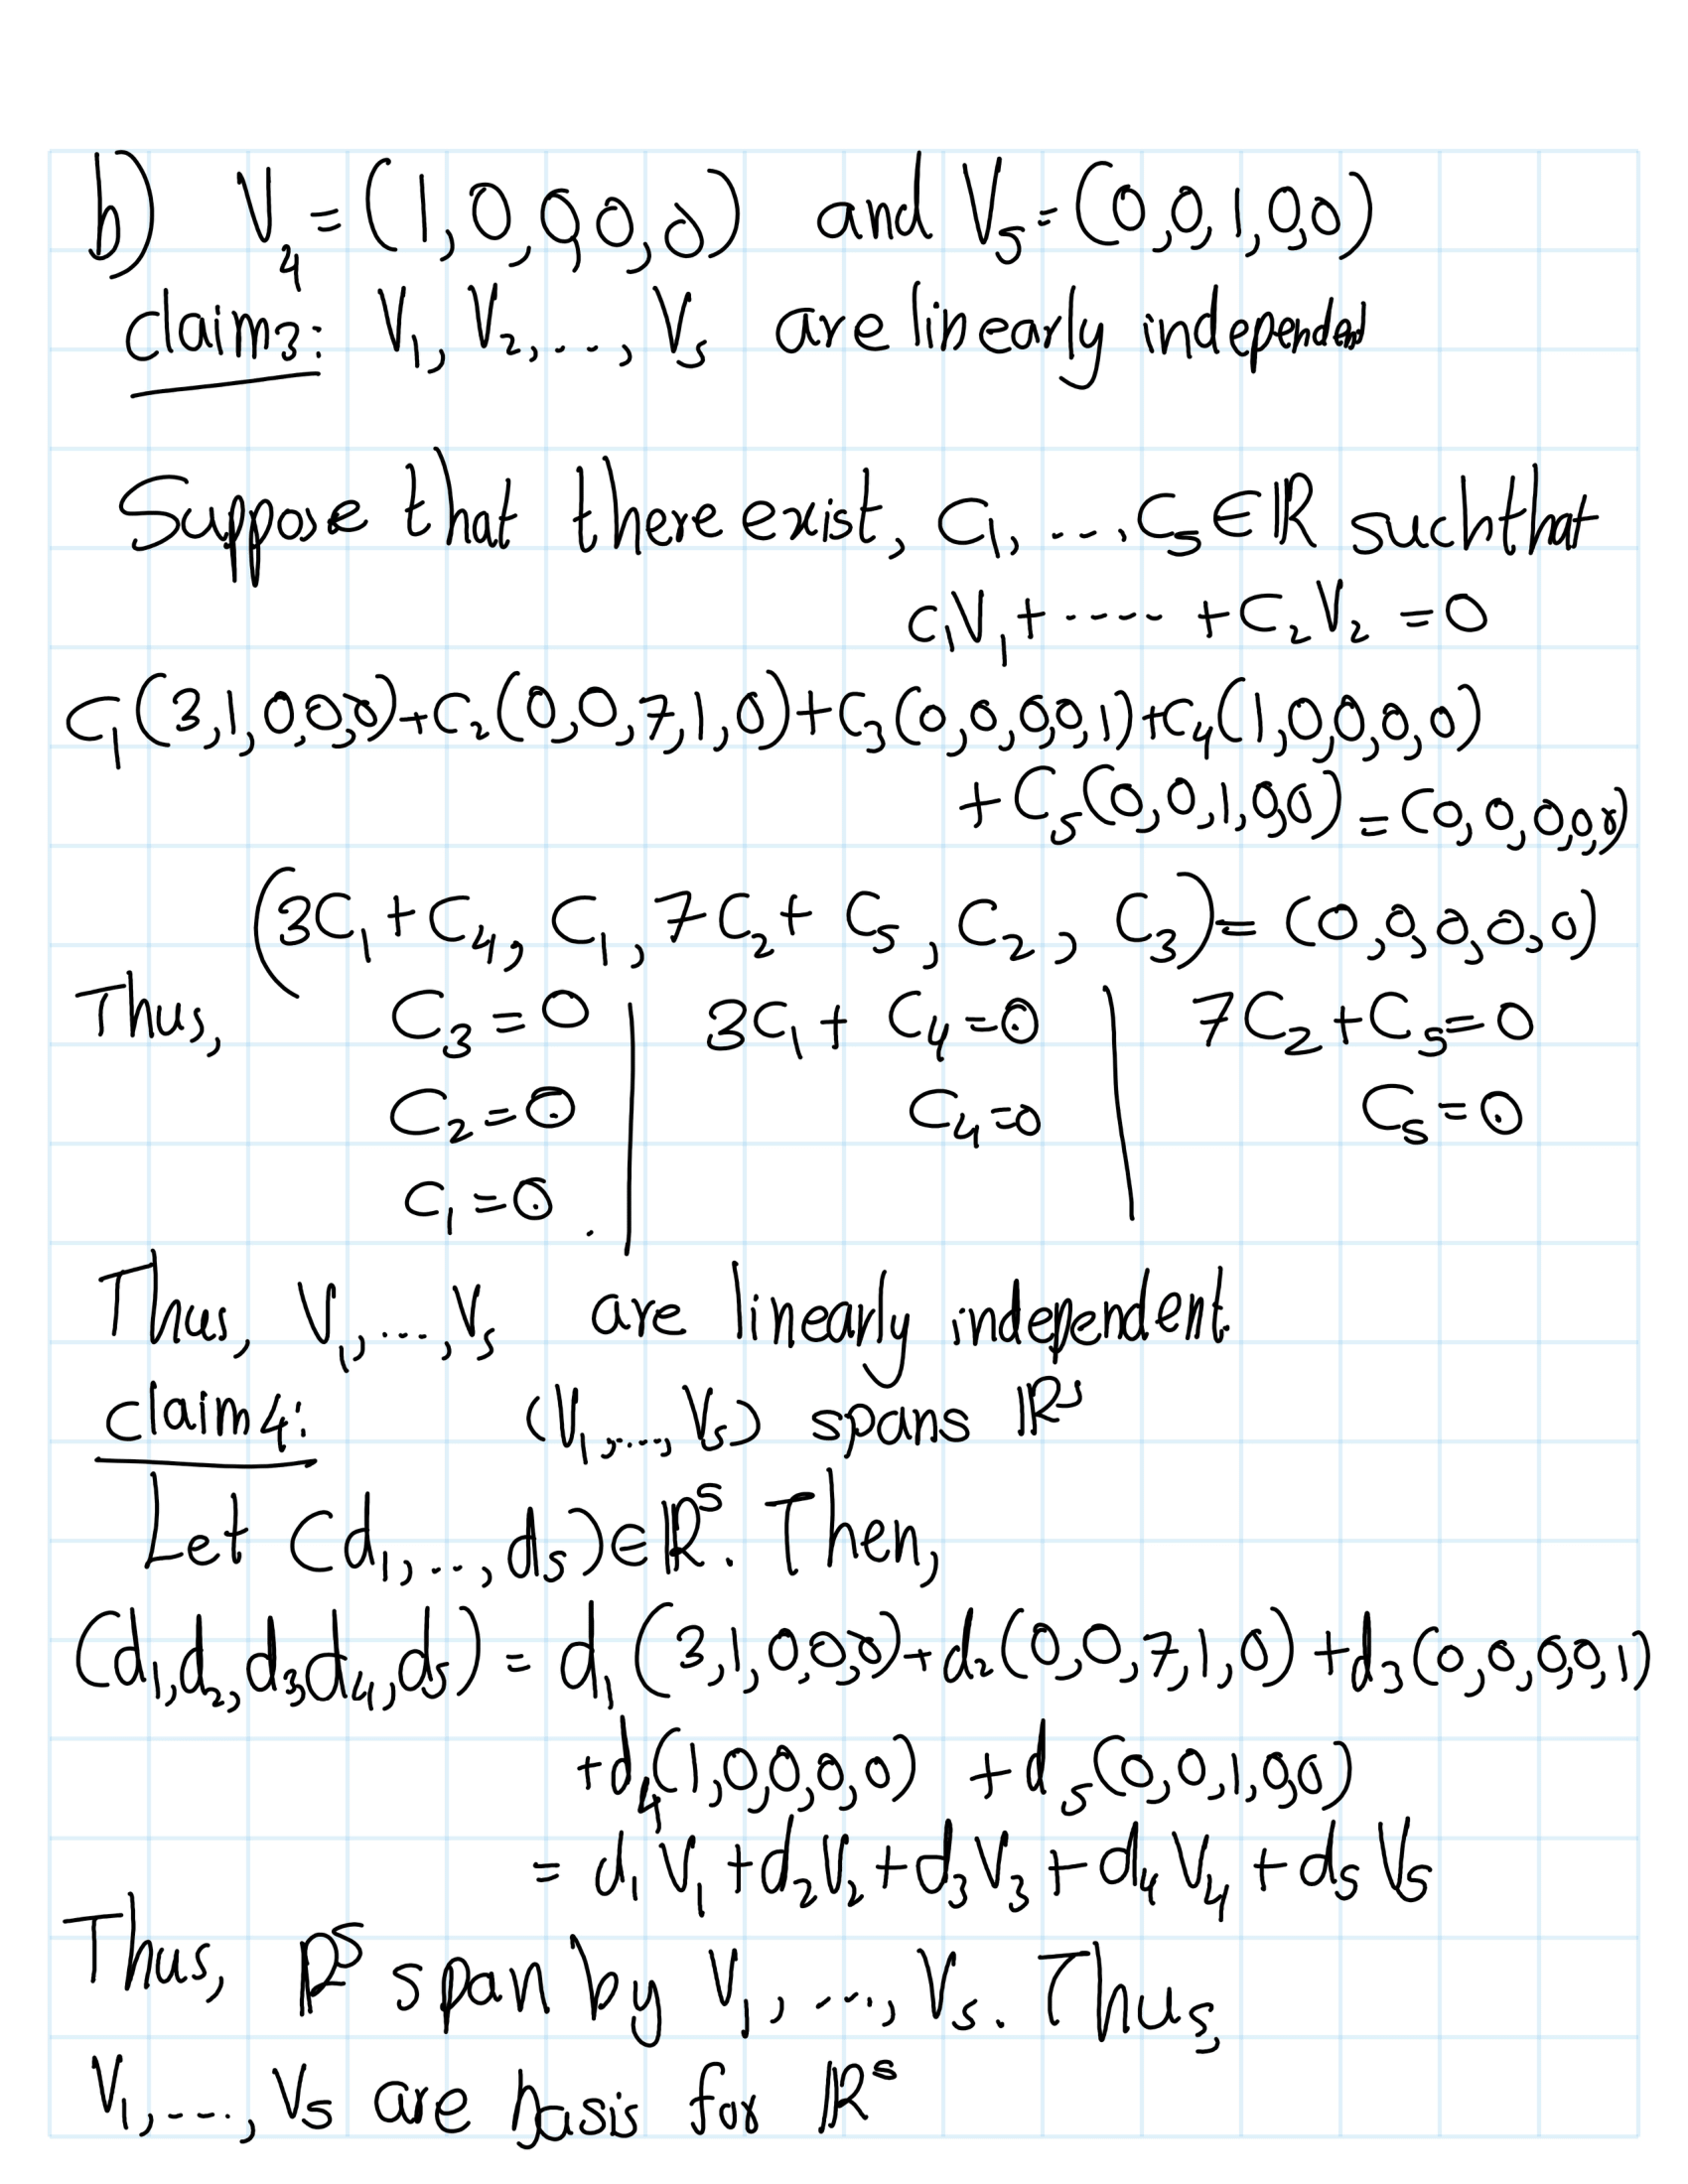 b) V₄=(1,0,0,0,0) and V₅=(0,0,1,0,0)
claim3: V₁,V₂,...,V₅ are linearly independent
Suppose that there exist, C₁,...,C₅∈ℝ such that
C₁V₁+-----+C₂V₂=0
C₁(3,1,0,0,0)+C₂(0,0,7,1,0)+C₃(0,0,0,0,1)+C₄(1,0,0,0,0)
+C₅(0,0,1,0,0)=(0,0,0,0,0)
(3C₁+C₄,C₁,7C₂+C₅,C₂,C₃)=(0,0,0,0,0)
Thus, C₃=0 | 3C₁+C₄=0 | 7C₂+C₅=0
C₂=0 | C₄=0 | C₅=0
C₁=0.
Thus, V₁,...,V₅ are linearly independent.
claim4: (V₁,...,V₅) spans ℝ⁵
Let (d₁,...,d₅)∈ℝ⁵. Then,
(d₁,d₂,d₃,d₄,d₅)=d₁(3,1,0,0,0)+d₂(0,0,7,1,0)+d₃(0,0,0,0,1)
+d₄(1,0,0,0,0)+d₅(0,0,1,0,0)
=d₁V₁+d₂V₂+d₃V₃+d₄V₄+d₅V₅
Thus, ℝ⁵ span by V₁,...,V₅. Thus,
V₁,...,V₅ are basis for ℝ⁵